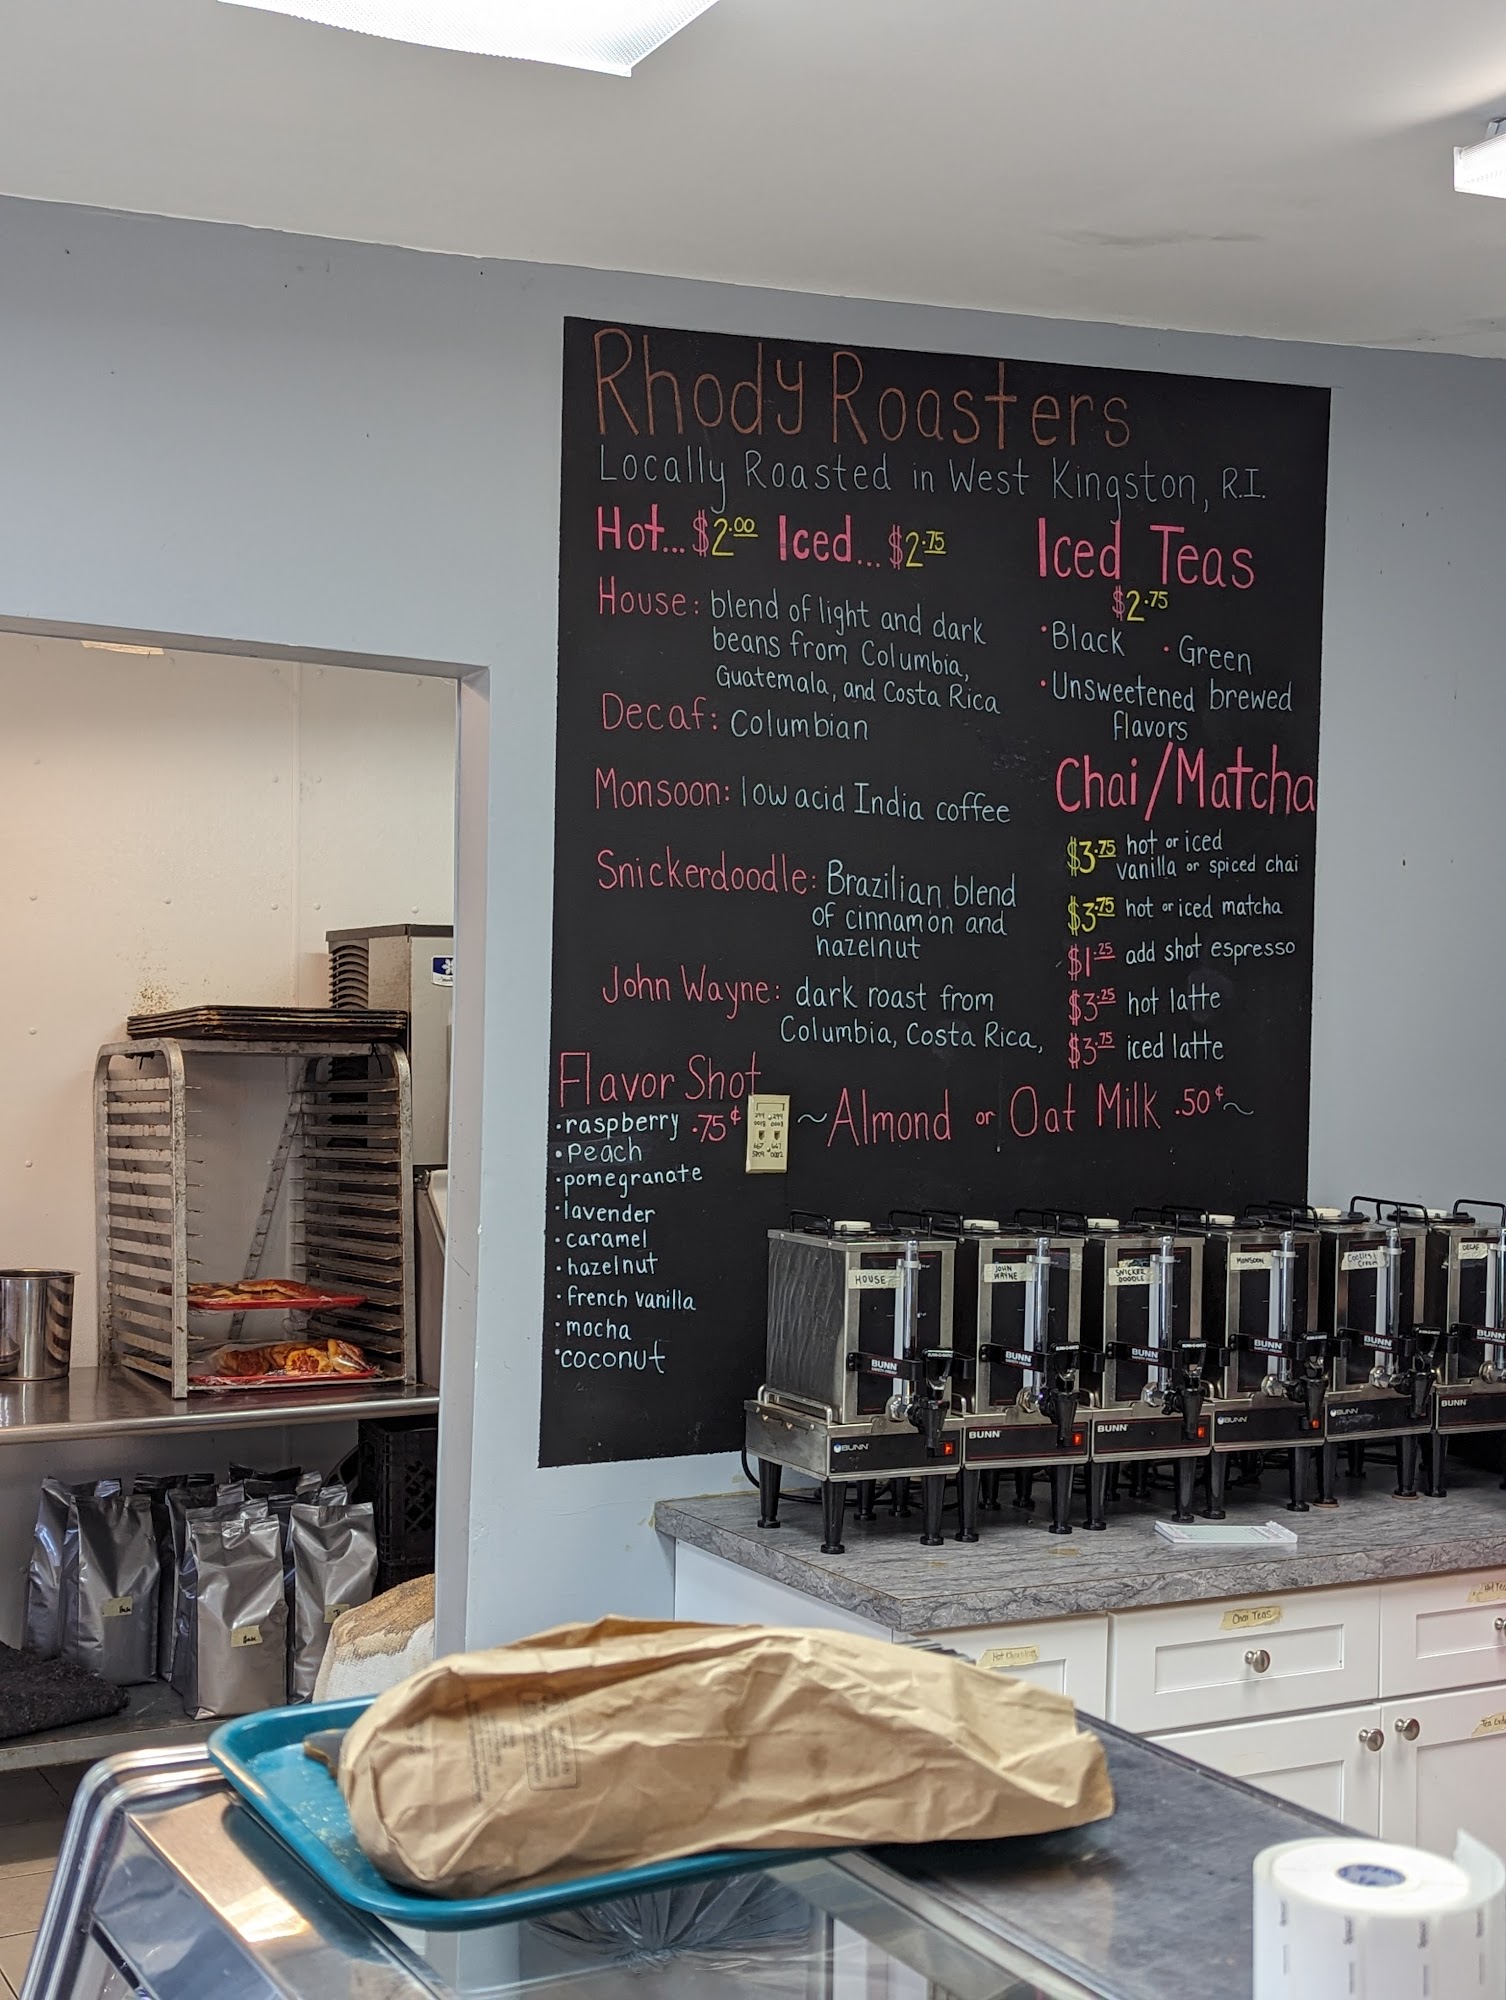 Rhody Roasters
Locally Roasted in West Kingston, R.I.
Hot... $2.00 Iced... $2.75
House: blend of light and dark
beans from Columbia,
Guatemala, and Costa Rica
Decaf: Columbian
Monsoon: low acid India coffee
Snickerdoodle: Brazilian blend
of cinnamon and
hazelnut
John Wayne: dark roast from
Columbia, Costa Rica,
Iced Teas
$2.75
• Black • Green
• Unsweetened brewed
flavors
Chai/Matcha
$3.75 hot or iced
vanilla or spiced chai
$3.75 hot or iced matcha
$1.25 add shot espresso
$3.25 hot latte
$3.75 iced latte
Flavor Shot
• raspberry .75¢
• Peach
• pomegranate
• lavender
• caramel
• hazelnut
• french vanilla
• mocha
• coconut
~Almond or Oat Milk .50¢~
HOUSE
JOHN
WAYNE
SNICKER
DOODLE
MONSOON
DECAF
BUNN
BUNN
BUNN
BUNN
BUNN
BUNN
BUNN
BUNN
BUNN
BUNN
BUNN
BUNN
Chai Teas